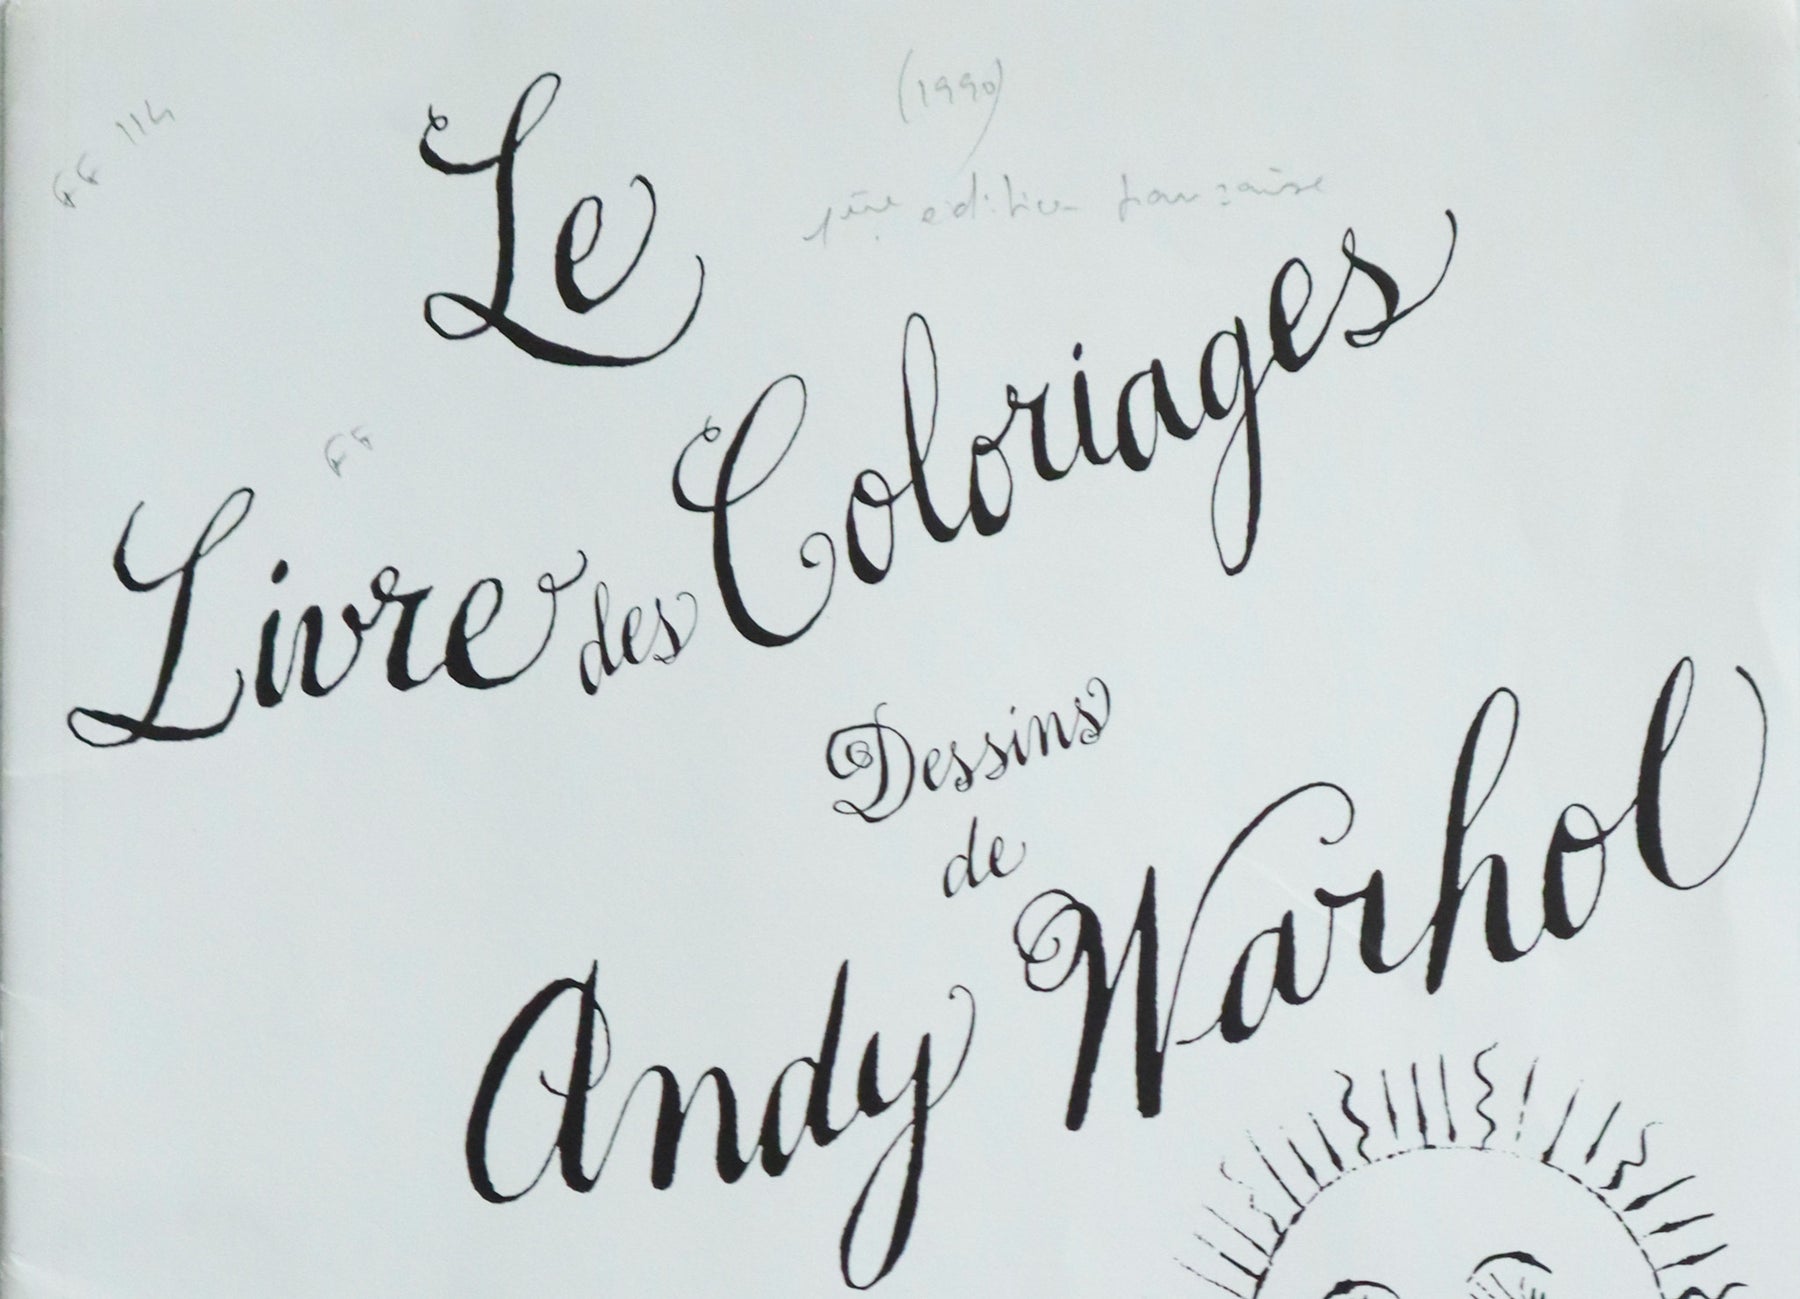 (1990)
FF 114
1ère édition française
Le
FF
Livre des Coloriages
Dessins
de
Andy Warhol